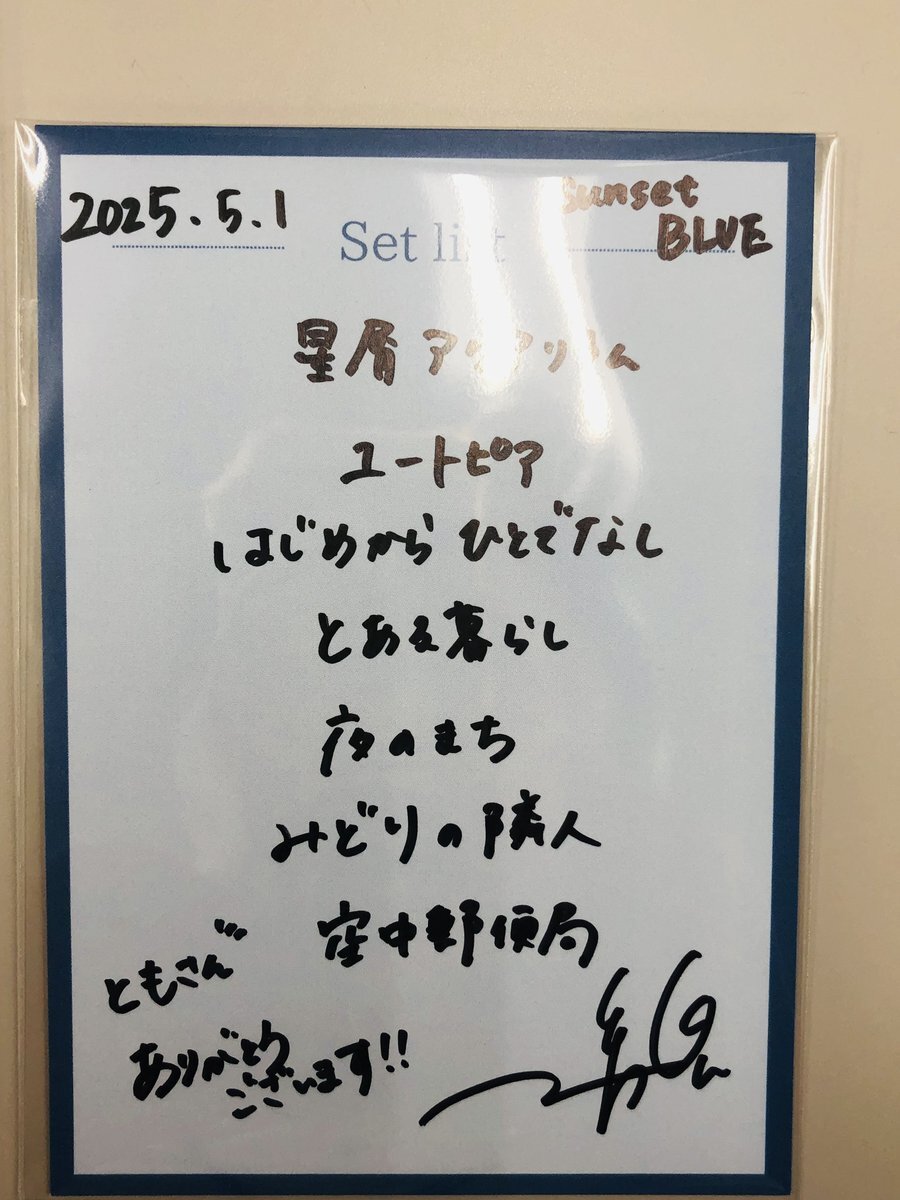 2025.5.1
Set list
sunset
BLUE
星屑アクアリウム
ユートピア
はじめから ひとでなし
とある暮らし
夜のまち
みどりの隣人
空中郵便局
ともさん
ありがとう
ございます!!